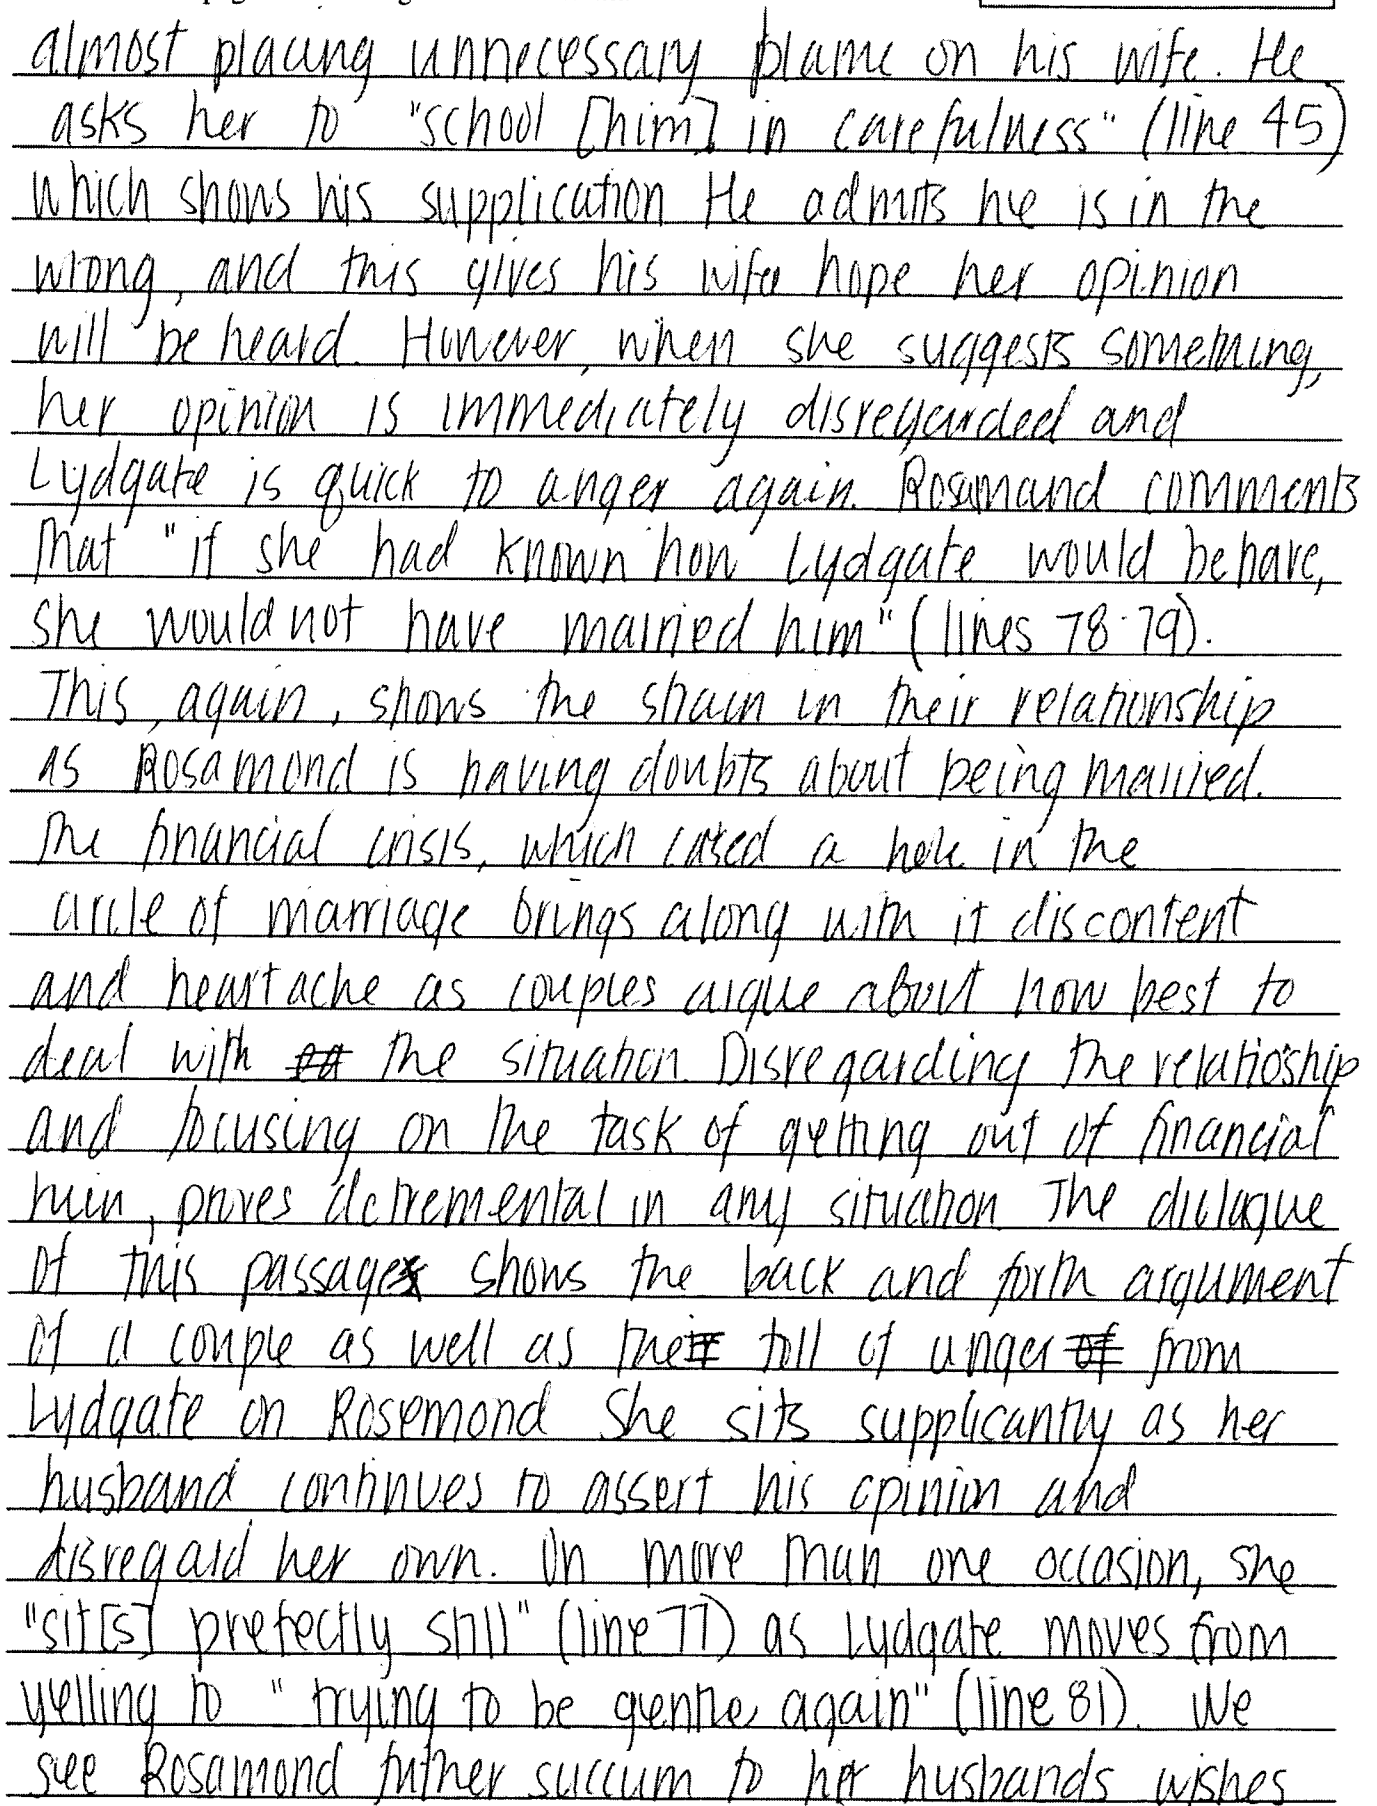 almost placing unnecessary blame on his wife. He
asks her to "school [him] in carefulness" (line 45)
which shows his supplication He admits he is in the
wrong, and this gives his wife hope her opinion
will be heard. However, when she suggests something,
her opinion is immediately disregarded and
Lydgate is quick to anger again. Rosamand comments
that "if she had known how Lydgate would behave,
she would not have married him" (lines 78-79).
This, again, shows the strain in their relationship
as Rosamond is having doubts about being married.
The financial crisis, which cased a hole in the
circle of marriage brings along with it discontent
and heartache as couples argue about how best to
deal with the situation. Disregarding the relatioship
and focusing on the task of getting out of financial
ruin, proves detremental in any situation The dialague
of this passage shows the back and forth argument
of a couple as well as the toll of anger from
Lydgate on Rosemond She sits supplicantly as her
husband continues to assert his opinion and
disregard her own. On more than one occasion, she
"sit[s] prefectly still" (line 77) as Lydgate moves from
yelling to "trying to be gentle again" (line 81). We
see Rosamond futher succum to her husbands wishes